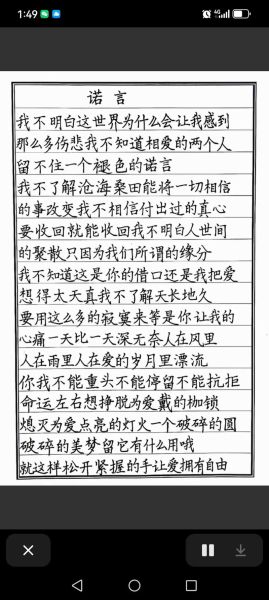 1:49
4G
诺言
我不明白这世界为什么会让我感到
那么多伤悲我不知道相爱的两个人
留不住一个褪色的诺言
我不了解沧海桑田能将一切相信
的事改变我不相信付出过的真心
要收回就能收回我不明白人世间
的聚散只因为我们所谓的缘分
我不知道这是你的借口还是我把爱
想得太天真我不了解天长地久
要用这么多的寂寞来等是你让我的
心痛一天比一天深无奈人在风里
人在雨里人在爱的岁月里漂流
你我不能重头不能停留不能抗拒
命运左右想挣脱为爱戴的枷锁
熄灭为爱点亮的灯火一个破碎的圆
破碎的美梦留它有什么用哦
就这样松开紧握的手让爱拥有自由